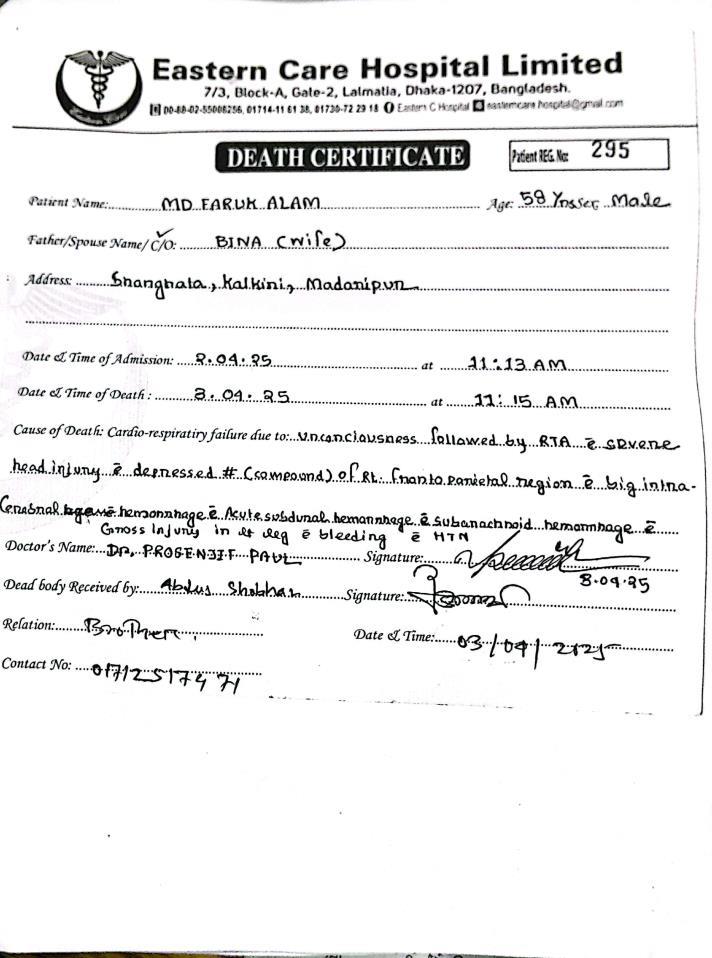 Eastern Care Hospital Limited
7/3, Block-A, Gate-2, Lalmatia, Dhaka-1207, Bangladesh.
00-88-02-55008256, 01714-11 61 38, 01730-72 29 18 Eastern C Hospital easterncare.hospital@gmail.com
DEATH CERTIFICATE
Patient REG. No: 295
Patient Name: MD FARUK ALAM Age: 58 Yrs Sex: Male
Father/Spouse Name/ C/O: BINA (wife)
Address: Kalkini, Madaripur
Date & Time of Admission: 2.04.25 at 11:13 AM
Date & Time of Death : 3.04.25 at 11:15 AM
Cause of Death: Cardio-respiratiry failure due to: unconciousness followed by RTA c̄ severe
head injury c̄ depressed # (compound) of Rt. fronto parietal region c̄ big intra-
Cerebral hemorrhage c̄ Acute subdural hemorrhage c̄ subarachnoid hemorrhage c̄
Gross Injury in lt leg c̄ bleeding c̄ HTN
Doctor's Name: DR. PROSENJIT PAUL Signature:
3.04.25
Dead body Received by: Abdus Shobhan Signature:
Relation: Brother Date & Time: 03/04/2025
Contact No: 01712517471